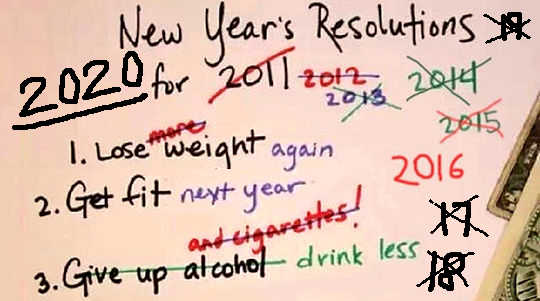 New Year's Resolutions 19
2020 for 2011 2012 2013 2014
2015
2016
1. Lose more weight again
2. Get fit next year
17
and cigarettes!
3. Give up alcohol drink less 18